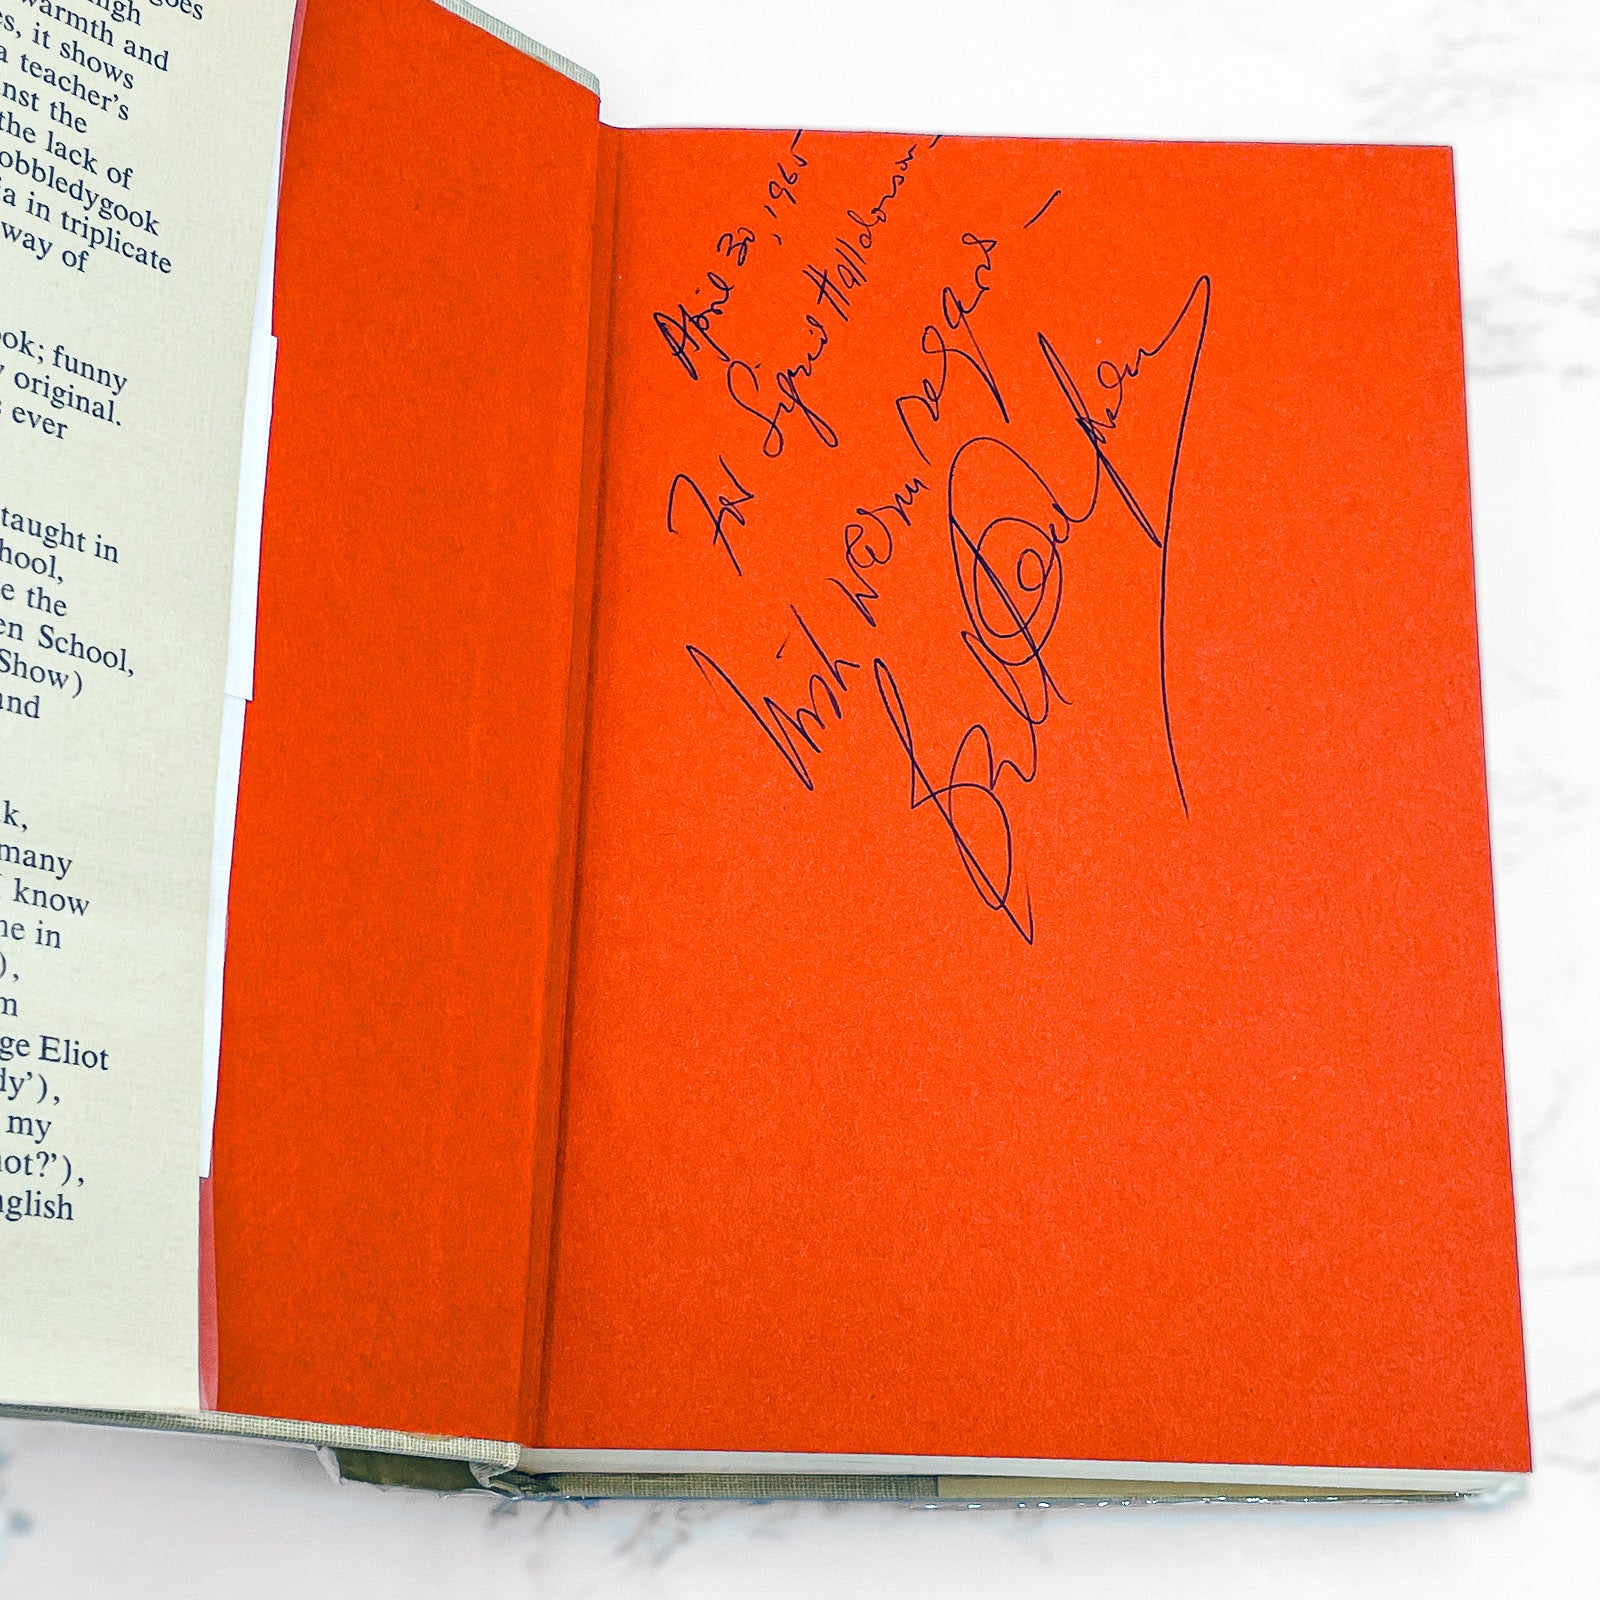 goes
high
warmth and
es, it shows
a teacher's
inst the
the lack of
obbledygook
ia in triplicate
way of
ook; funny
y original.
s ever
taught in
hool,
e the
en School,
Show)
and
k,
many
I know
ne in
),
m
ge Eliot
dy'),
my
not?'),
nglish
April 30, 1965
For Sigrid Halldorson —
With warm regards —
Bel Kaufman